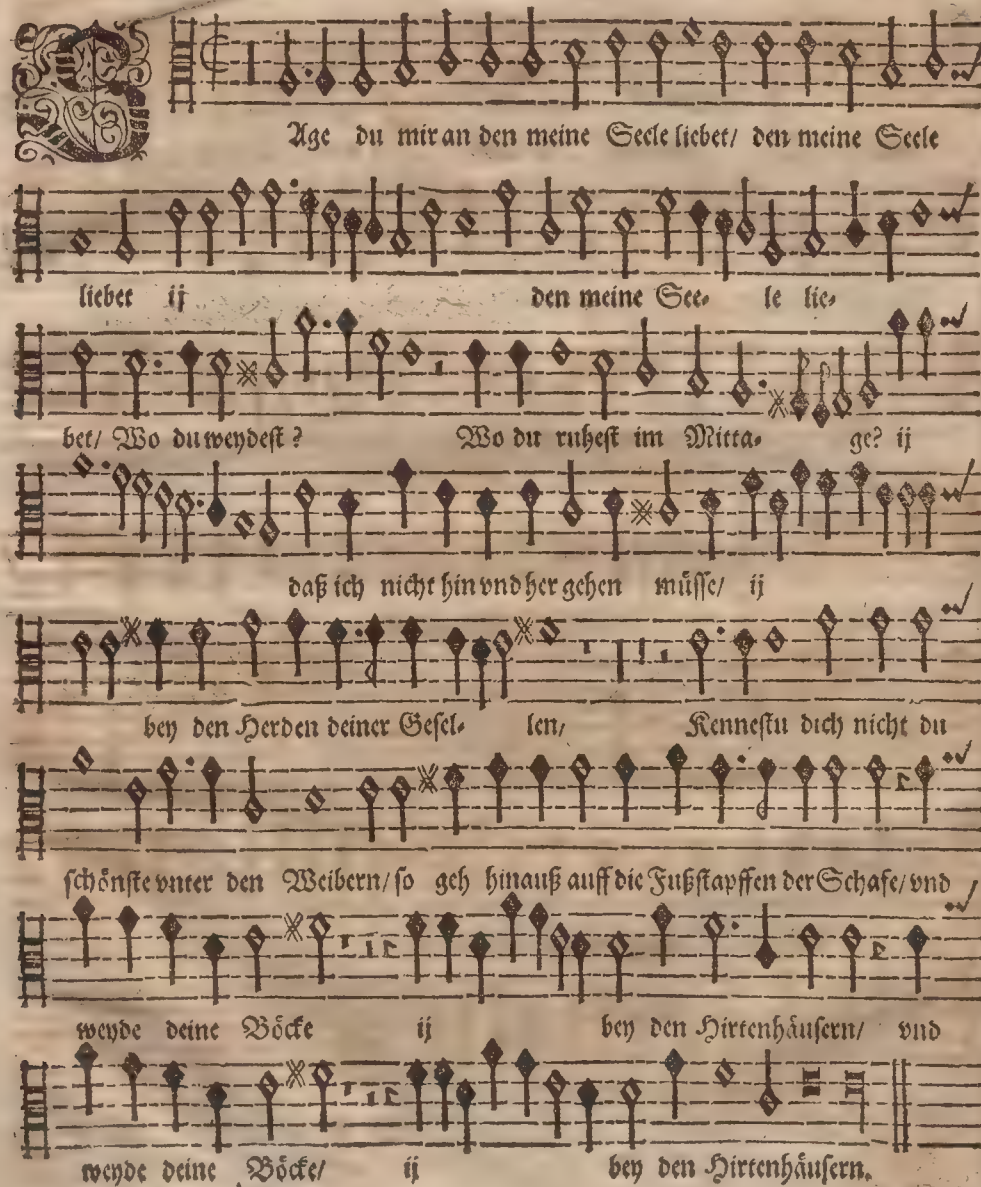 SAge du mir an den meine Seele liebet/ den meine Seele
liebet ij den meine See- le lie-
bet/ Wo du weydest? Wo du ruhest im Mitta- ge? ij
daß ich nicht hin vnd her gehen müsse/ ij
bey den Herden deiner Gesel- len/ Kennestu dich nicht du
schönste vnter den Weibern/ so geh hinauß auff die Fußstapffen der Schafe/ vnd
weyde deine Böcke ij bey den Hirtenhäusern/ vnd
weyde deine Böcke/ ij bey den Hirtenhäusern.